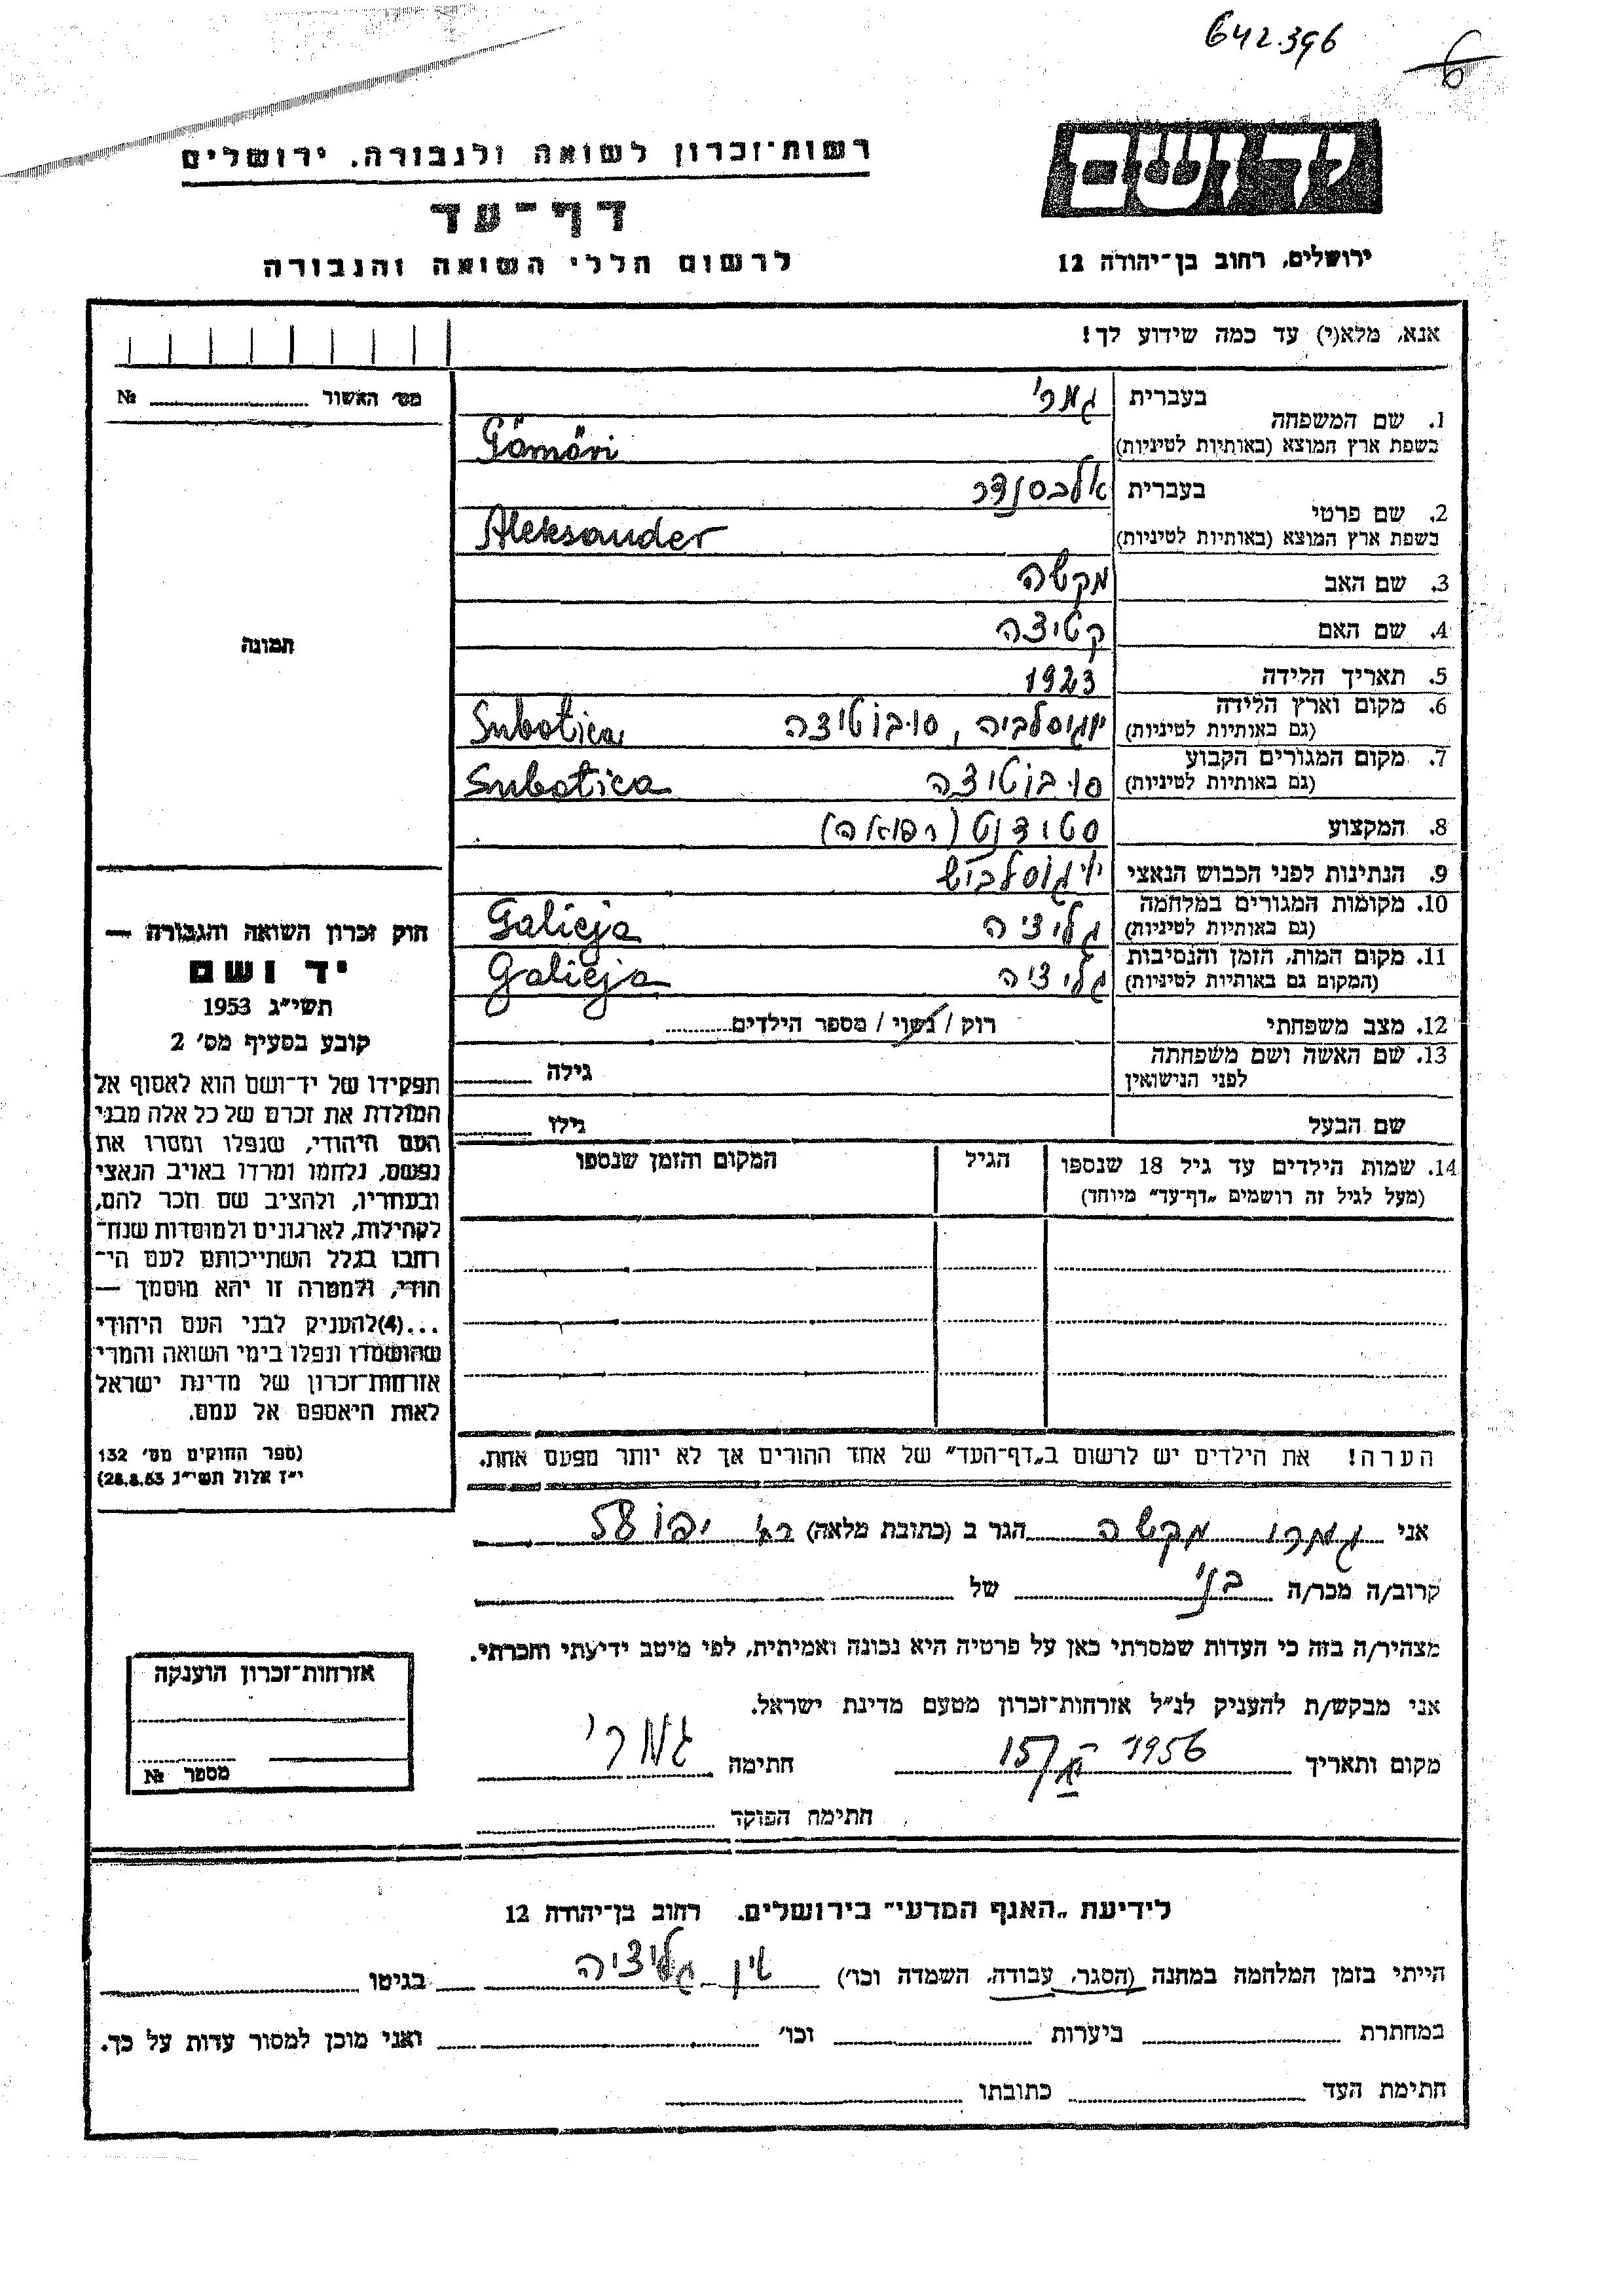 642.396
6
יד ושם
רשות־זכרון לשואה ולגבורה, ירושלים
דף־עד
ירושלים, רחוב בן־יהודה 12
לרשום חללי השואה והגבורה
אנא, מלא(י) עד כמה שידוע לך!
מס׳ האשור № 
1. שם המשפחה
בעברית גמרי
בשפת ארץ המוצא (באותיות לטיניות) Gömöri
2. שם פרטי
בעברית אלכסנדר
בשפת ארץ המוצא (באותיות לטיניות) Aleksander
3. שם האב מקשה
4. שם האם קטיצה
5. תאריך הלידה 1923
6. מקום וארץ הלידה
(גם באותיות לטיניות) יוגוסלביה, סובוטיצה Subotica
7. מקום המגורים הקבוע
(גם באותיות לטיניות) סובוטיצה Subotica
8. המקצוע סטודנט (רפואה)
9. הנתינות לפני הכבוש הנאצי
10. מקומות המגורים במלחמה
(גם באותיות לטיניות) גליציה Galicja
11. מקום המות, הזמן והנסיבות
(המקום גם באותיות לטיניות) גליציה Galicja
12. מצב משפחתי רוק / נשוי / מספר הילדים
13. שם האשה ושם משפחתה
לפני הנישואין גילה
שם הבעל גילו
14. שמות הילדים עד גיל 18 שנספו הגיל המקום והזמן שנספו
(מעל לגיל זה רושמים „דף־עד״ מיוחד)
הערה! את הילדים יש לרשום ב„דף־העד״ של אחד ההורים אך לא יותר מפעם אחת.
תמונה
חוק זכרון השואה והגבורה —
יד ושם
תשי״ג 1953
קובע בסעיף מס׳ 2
תפקידו של יד־ושם הוא לאסוף אל
המולדת את זכרם של כל אלה מבני
העם היהודי, שנפלו ומסרו את
נפשם, נלחמו ומרדו באויב הנאצי
ובעוזריו, ולהציב שם וזכר להם,
לקהילות, לארגונים ולמוסדות שנח־
רבו בגלל השתייכותם לעם הי־
הודי, ולמטרה זו יהא מוסמך —
...(4)להעניק לבני העם היהודי
שהושמדו ונפלו בימי השואה והמרי
אזרחות־זכרון של מדינת ישראל
לאות היאספם אל עמם.
(ספר החוקים מס׳ 132
י״ז אלול תשי״ג 28.8.53)
אני מקשה הגר ב (כתובת מלאה)
קרוב/ה מכר/ה בני של
מצהיר/ה בזה כי העדות שמסרתי כאן על פרטיה היא נכונה ואמיתית, לפי מיטב ידיעתי והכרתי.
אני מבקש/ת להעניק לנ״ל אזרחות־זכרון מטעם מדינת ישראל.
מקום ותאריך 1956 חתימה גמרי
חתימת הפוקד
אזרחות־זכרון הוענקה
מספר №
לידיעת „האגף המדעי״ בירושלים. רחוב בן־יהודה 12
הייתי בזמן המלחמה במחנה (הסגר, עבודה, השמדה וכו׳) גליציה בגיטו
במחתרת ביערות וכו׳ ואני מוכן למסור עדות על כך.
חתימת העד כתובתו